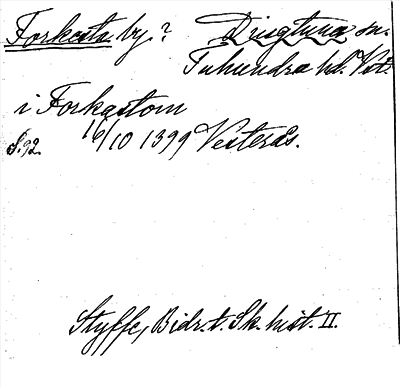 Forkasta by? Dingtuna sn.
Tuhundra hd. Vstm.
i Forkastom
S. 92. 16/10 1399 Vesterås.
Styffe, Bidr. t. Sk. hist. II.